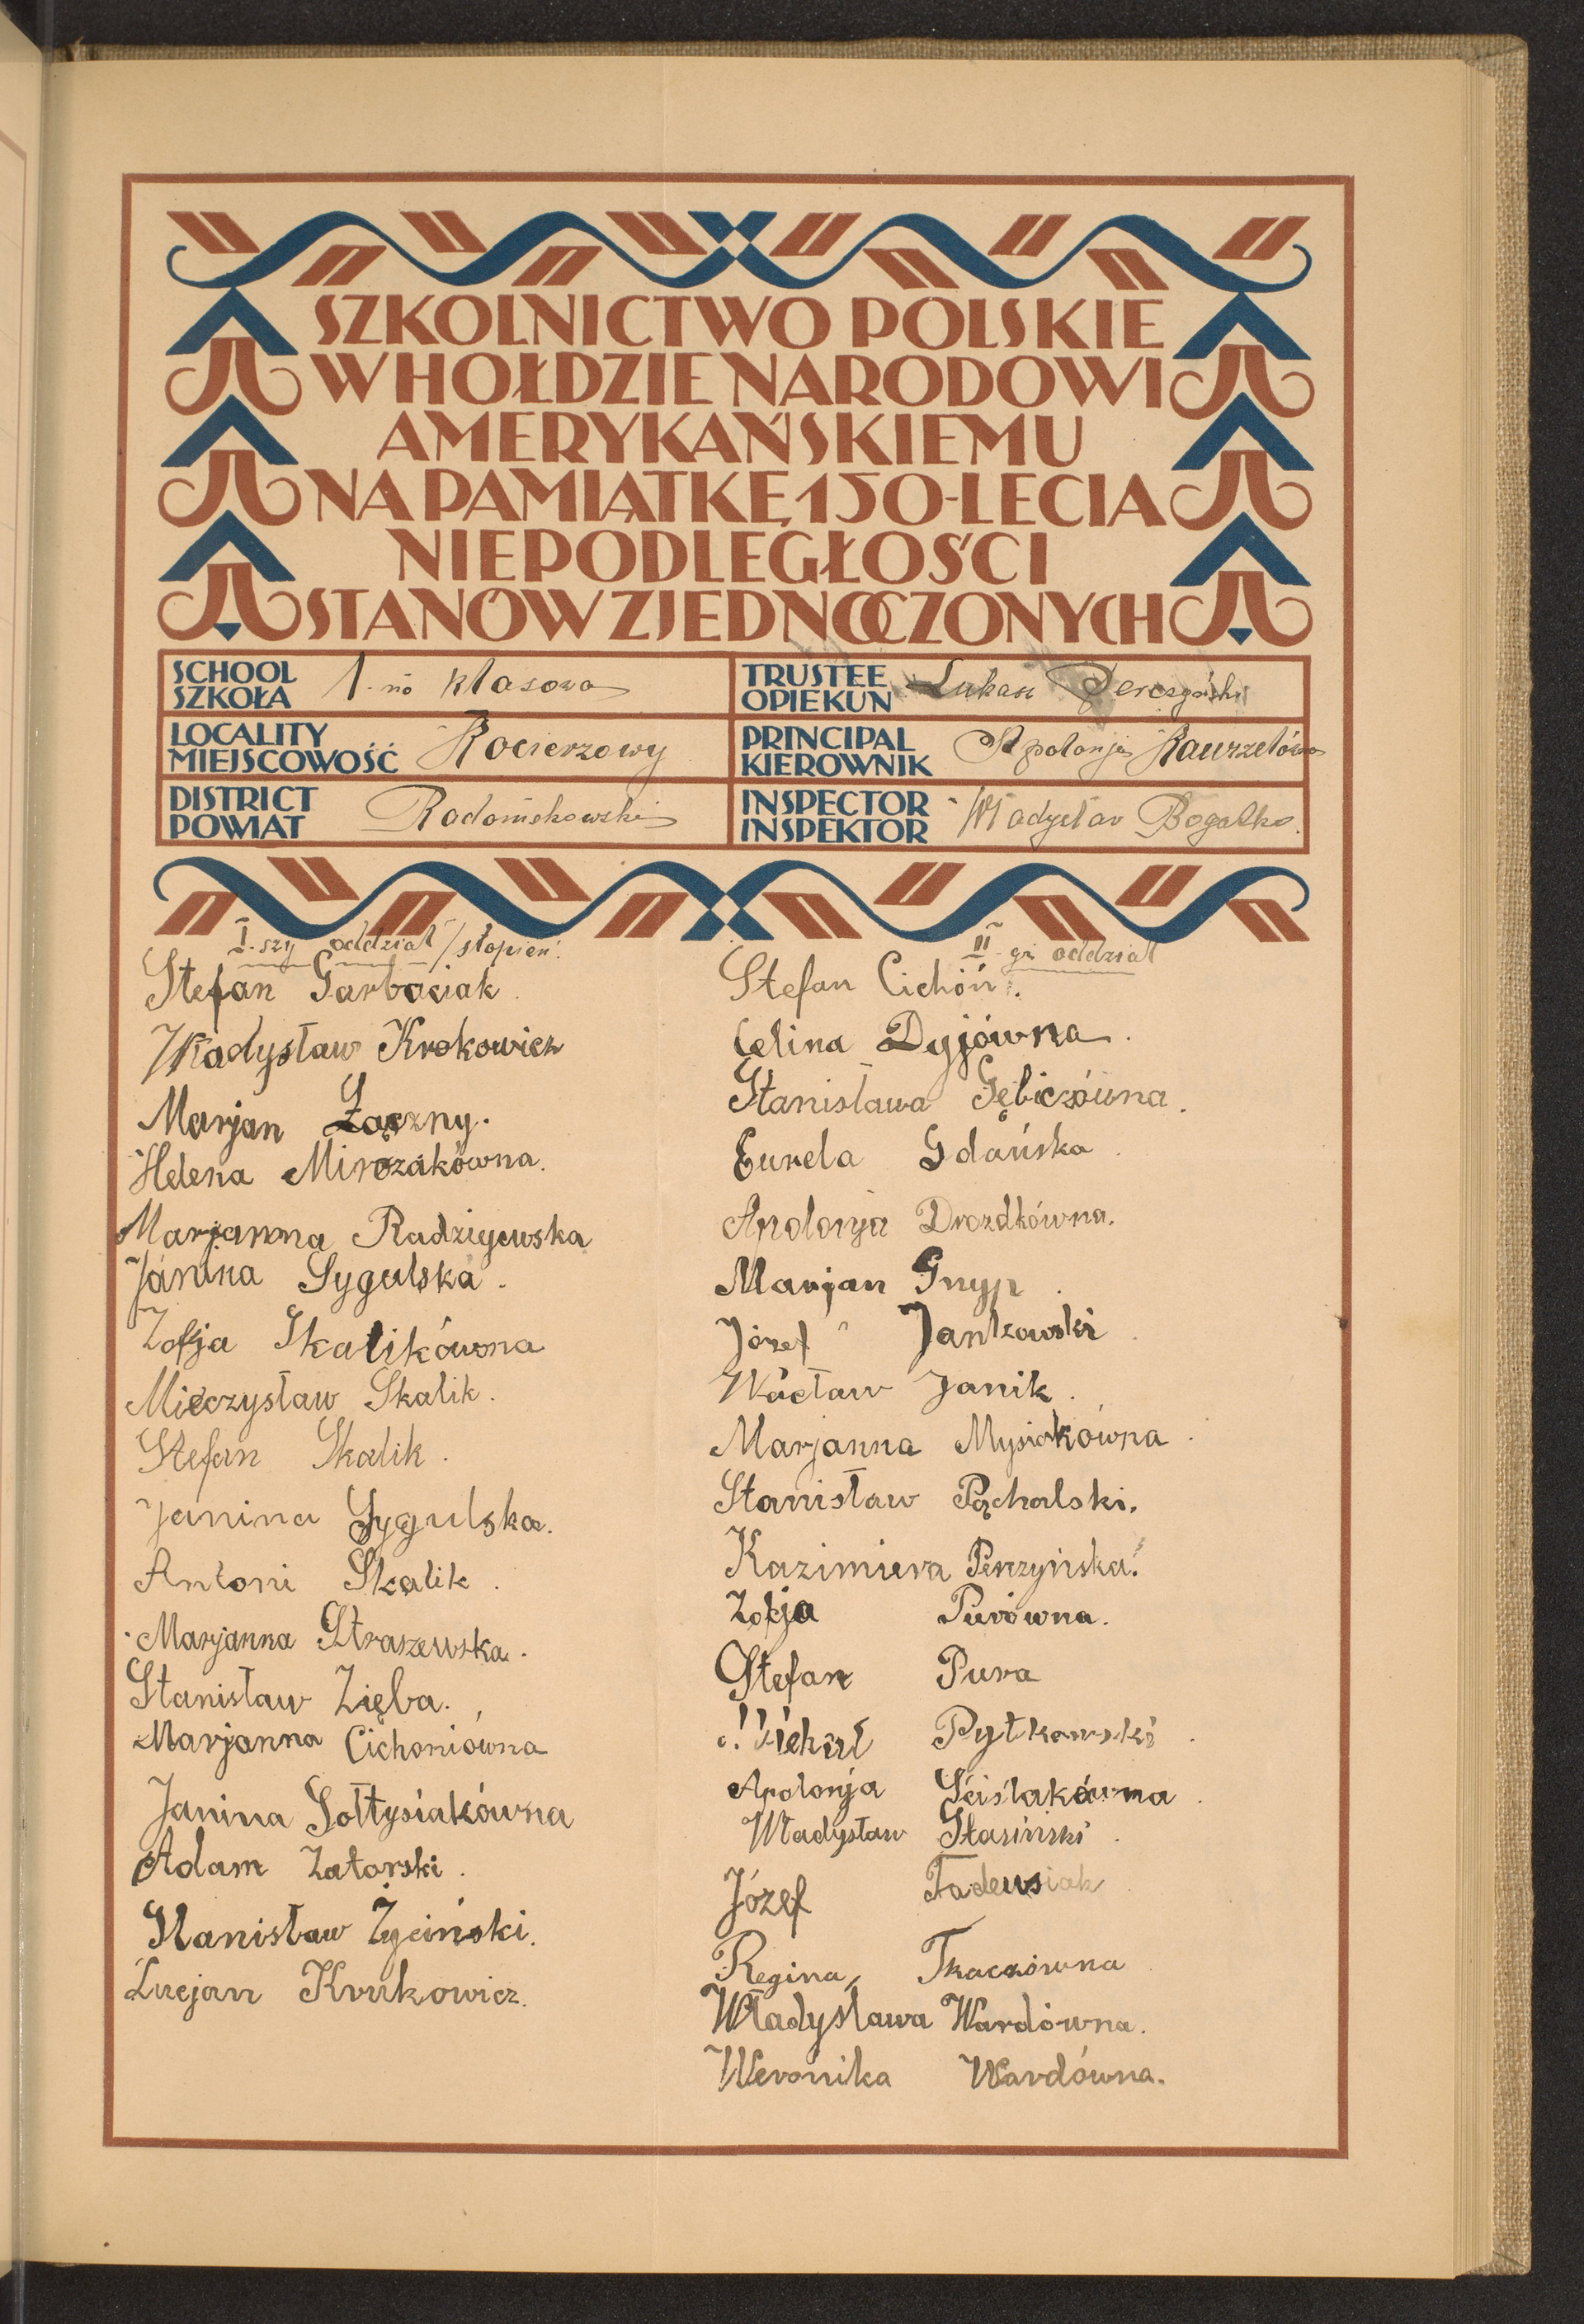 SZKOLNICTWO POLSKIE
W HOŁDZIE NARODOWI
AMERYKAŃSKIEMU
NA PAMIĄTKĘ 150-LECIA
NIEPODLEGŁOŚCI
STANÓW ZJEDNOCZONYCH
SCHOOL
SZKOŁA 1-no klasowa
TRUSTEE
OPIEKUN Łukasz
LOCALITY
MIEJSCOWOŚĆ Kocierzowy
PRINCIPAL
KIEROWNIK Apolonja Kawrzelówna
DISTRICT
POWIAT Radomskowski
INSPECTOR
INSPEKTOR Władysław Bogatko.
I-szy oddział / stopień.
Stefan Garbaciak.
Władysław Krokowicz
Marjan Łączny.
Helena Mirczakówna.
Marjanna Radziejewska
Janina Sygulska.
Zofja Skalikówna
Mieczysław Skalik.
Stefan Skalik.
Janina Sygulska.
Antoni Skalik.
Marjanna Straszewska.
Stanisław Zięba.
Marjanna Cichoniówna
Janina Sołtysiakówna
Adam Zatorski.
Stanisław Życiński.
Lucjan Krukowicz.
II-gi oddział
Stefan Cichoń.
Celina Dyjówna.
Stanisława Gębiczówna.
Eurela Gdańska
Apolonja Drozdkówna.
Marjan Gnyp.
Józef Jankowski.
Wacław Janik.
Marjanna Mysiakówna.
Stanisław Pąchalski.
Kazimiera Perzyńska.
Zofja Purówna.
Stefan Pura
Michał Pytkowski.
Apolonja Ściślakówna.
Władysław Stasiński.
Józef Tadeusiak
Regina Tkaczówna
Władysława Wardówna.
Weronika Wardówna.